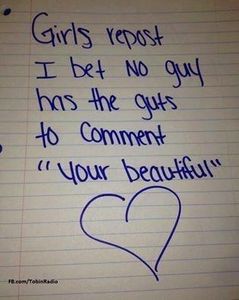 Girls repost
I bet No guy
has the guts
to Comment
"your beautiful"
FB.com/TobinRadio